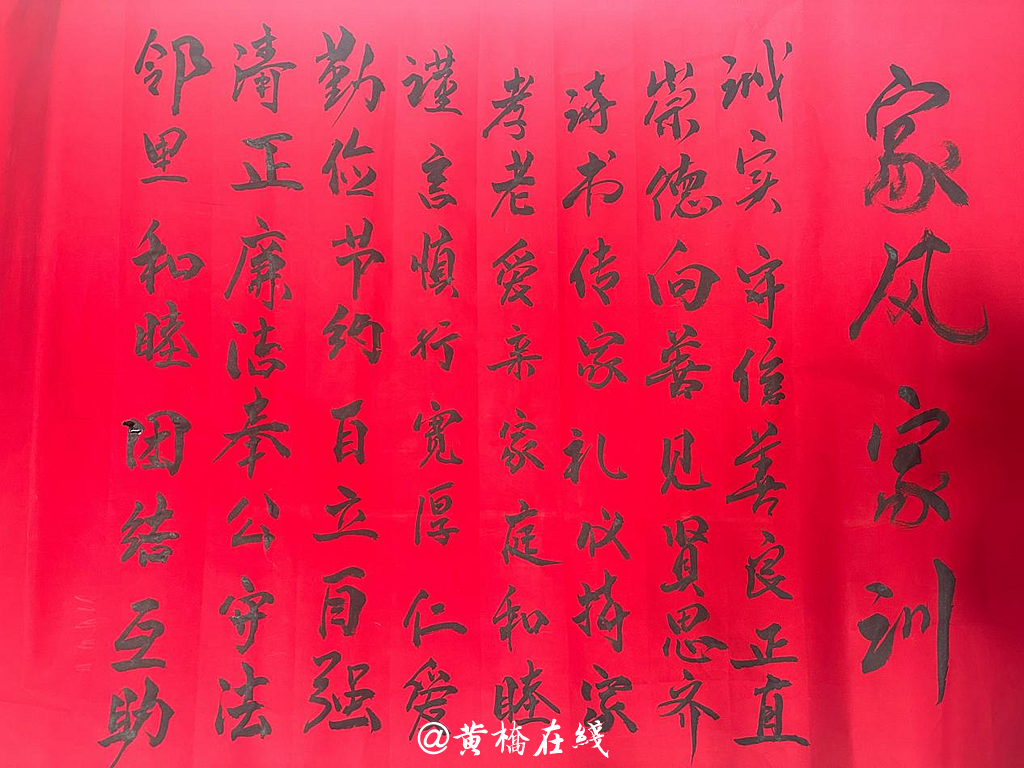 家风家训
诚实守信善良正直
崇德向善见贤思齐
诗书传家礼仪持家
孝老爱亲家庭和睦
谨言慎行宽厚仁爱
勤俭节约自立自强
清正廉洁奉公守法
邻里和睦团结互助
@黄橋在綫